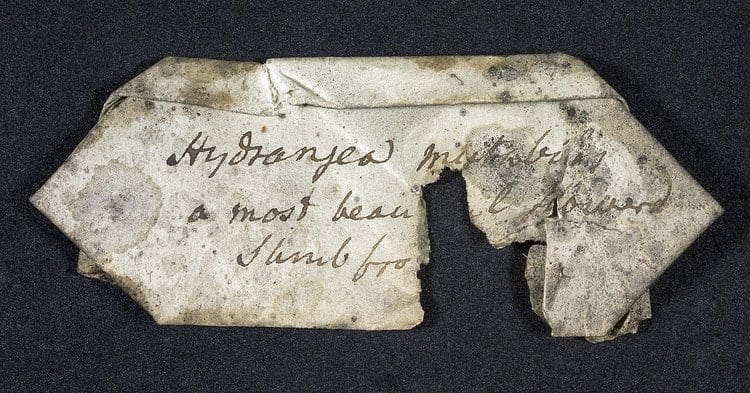 Hydrangea mutabilis
a most beau l flowerd
Shrub fro